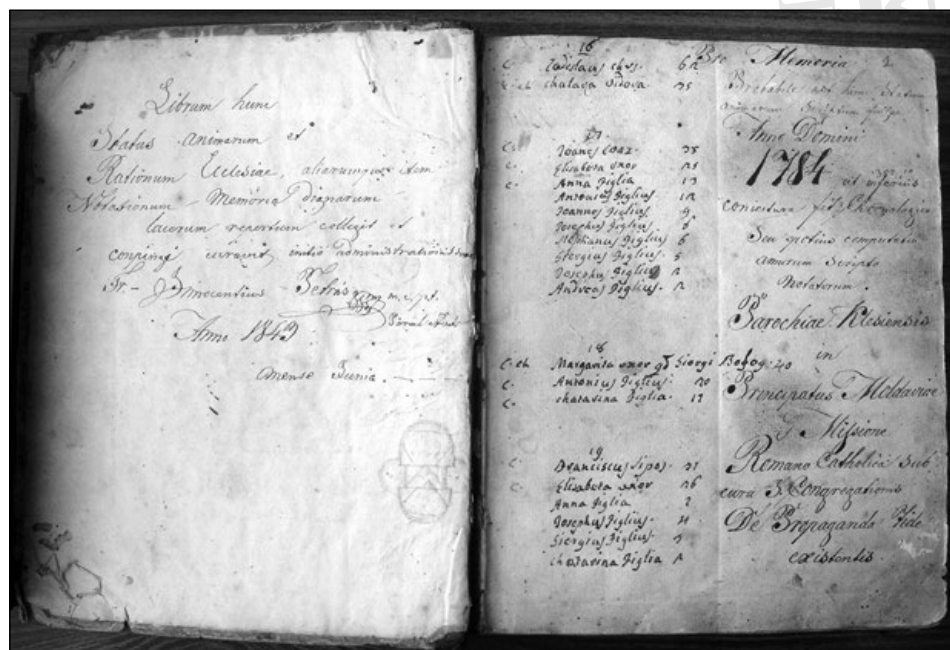 Librum hunc
Status Animarum et
Rationum Ecclesiae, aliarumque item
Notationum Memoria dignarum
lacerum repertum collegit et
compingi curavit initio administrationis suae
Fr. Innocentius Petrás m. c. pat.
Anno 1843
mense Junio.
16
C. Ladislaus 62
C. ch chatarina Vidova 35
17
C. Joanes 35
C. Elisabeta uxor 25
C. Anna Figlia 13
Antonius Figlius 12
Joannes Figlius 9
Josephus Figlius 8
Stephanus Figlius 6
Giorgius Figlius 5
Josephus Figlius 2
Andreas Figlius 2
18
C. ch Margarita uxor qd Giorgi Bogog 40
C. Antonius Figlius 20
C. chatarina Figlia 17
19
C. Franciscus Sipos 31
C. Elisabeta uxor 26
Anna Figlia 7
Josephus Figlius 4
Giorgius Figlius 3
chatarina Figlia 2
Pro Memoria 1
Probabile est hunc Statum
animarum Scriptum fuisse
Anno Domini
1784 ut inferius
conjectura fit Chronologica
Seu potius computatio
annorum Scripto
Notatorum.
Parochiae Klesiensis
in
Principatus Moldaviae
Missione
Romano Catholica Sub
cura S. Congregationis
De Propaganda Fide
existentis.